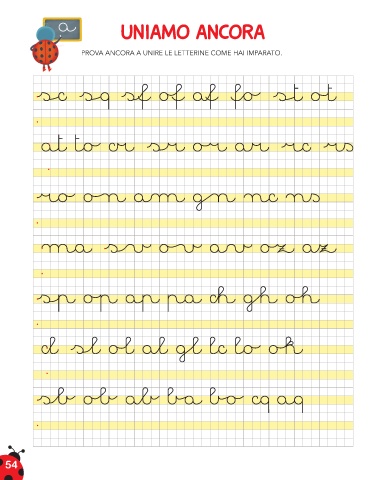 a
UNIAMO ANCORA
PROVA ANCORA A UNIRE LE LETTERINE COME HAI IMPARATO.
sc sq sf of af fo st ot
at to cr sr or ar rc rs
ro on am gn mc ns
ma sv ov av oz az
sp op ap pa ch gh oh
cl sl ol al gl lc lo ok
sb ob ab ba bo cq aq
54